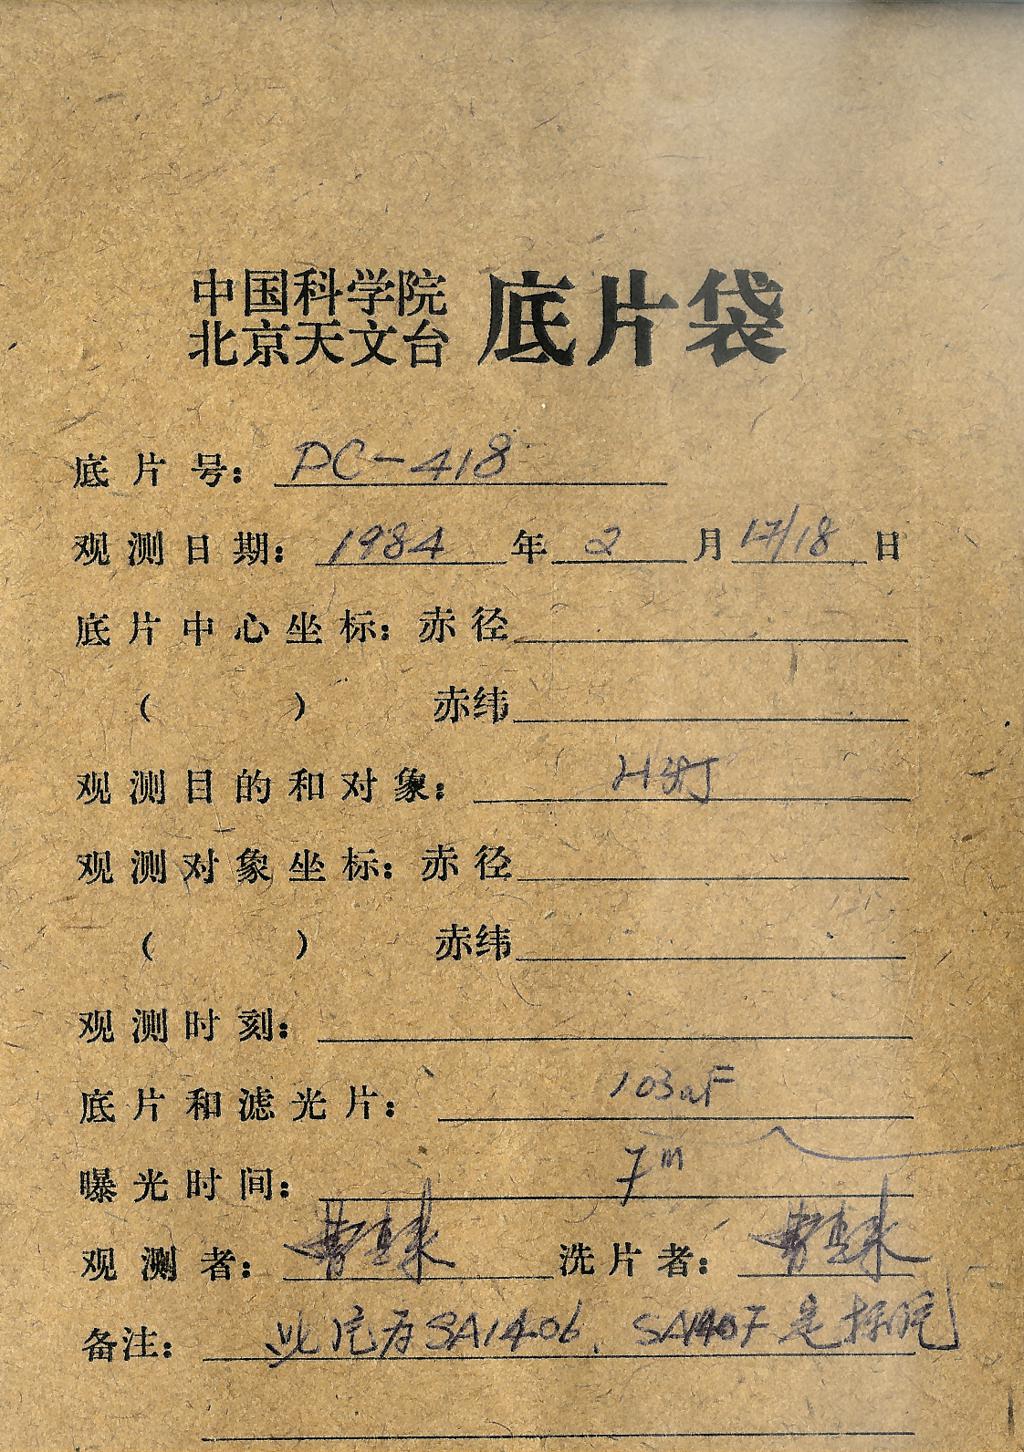 中国科学院
北京天文台 底片袋
底片号: PC-418
观测日期: 1984 年 2 月 17/18 日
底片中心坐标: 赤径
( ) 赤纬
观测目的和对象:
观测对象坐标: 赤径
( ) 赤纬
观测时刻:
底片和滤光片: 103aF
曝光时间: 7m
观测者: 洗片者:
备注: 此 为SA1406, SA1407是标